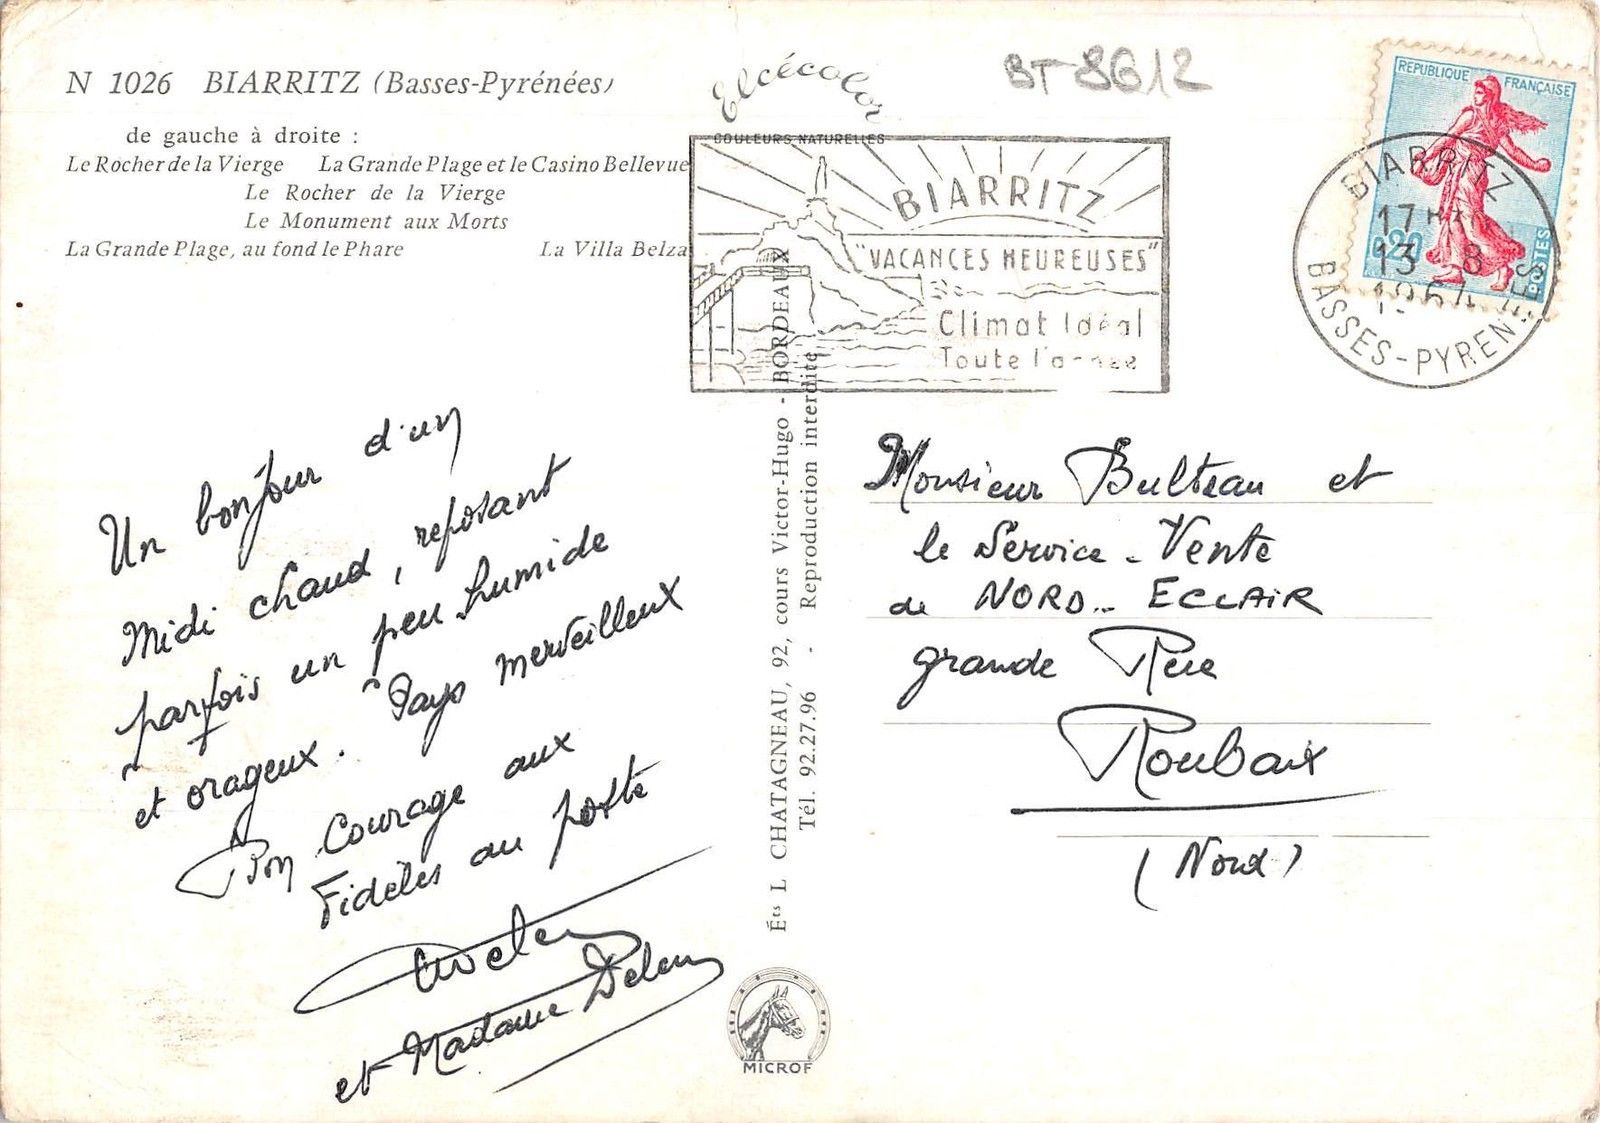 N 1026 BIARRITZ (Basses-Pyrénées)
de gauche à droite :
Le Rocher de la Vierge La Grande Plage et le Casino Bellevue
Le Rocher de la Vierge
Le Monument aux Morts
La Grande Plage, au fond le Phare La Villa Belza
Elcécolor
COULEURS NATURELLES
BT 8612
BIARRITZ
"VACANCES HEUREUSES"
Climat Idéal
Toute l'année
REPUBLIQUE FRANÇAISE
0,20
POSTES
BIARRITZ
17H
13 - 8
1964
BASSES-PYRENEES
Un bonjour d'un
Midi chaud, reposant
parfois un peu humide
et orageux. Pays merveilleux
Bon Courage aux
Fidèles au poste
et Madame
Éts L CHATAGNEAU, 92, cours Victor-Hugo - BORDEAUX
Tél. 92.27.96 - Reproduction interdite
MICROF
Monsieur Bulteau et
le Service - Vente
de NORD - ECLAIR
grande Rue
Roubaix
(Nord)